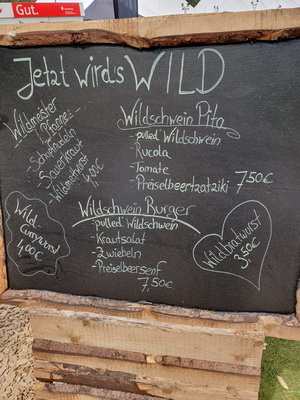 Gut.
Jetzt wird's WILD
Wildmeister
Pfanne:
- Schupfnudeln
- Sauerkraut
- Wildmettwurst
Wildschwein Pita
- "pulled" Wildschwein
- Rucola
- Tomate
- Preiselbeertzatziki 7,50€
Wildschwein Burger
- "pulled" Wildschwein
- Krautsalat
- Zwiebeln
- Preiselbeersenf
7,50€
Wild
Currywurst
4,00€
Wildbratwurst
3,50€